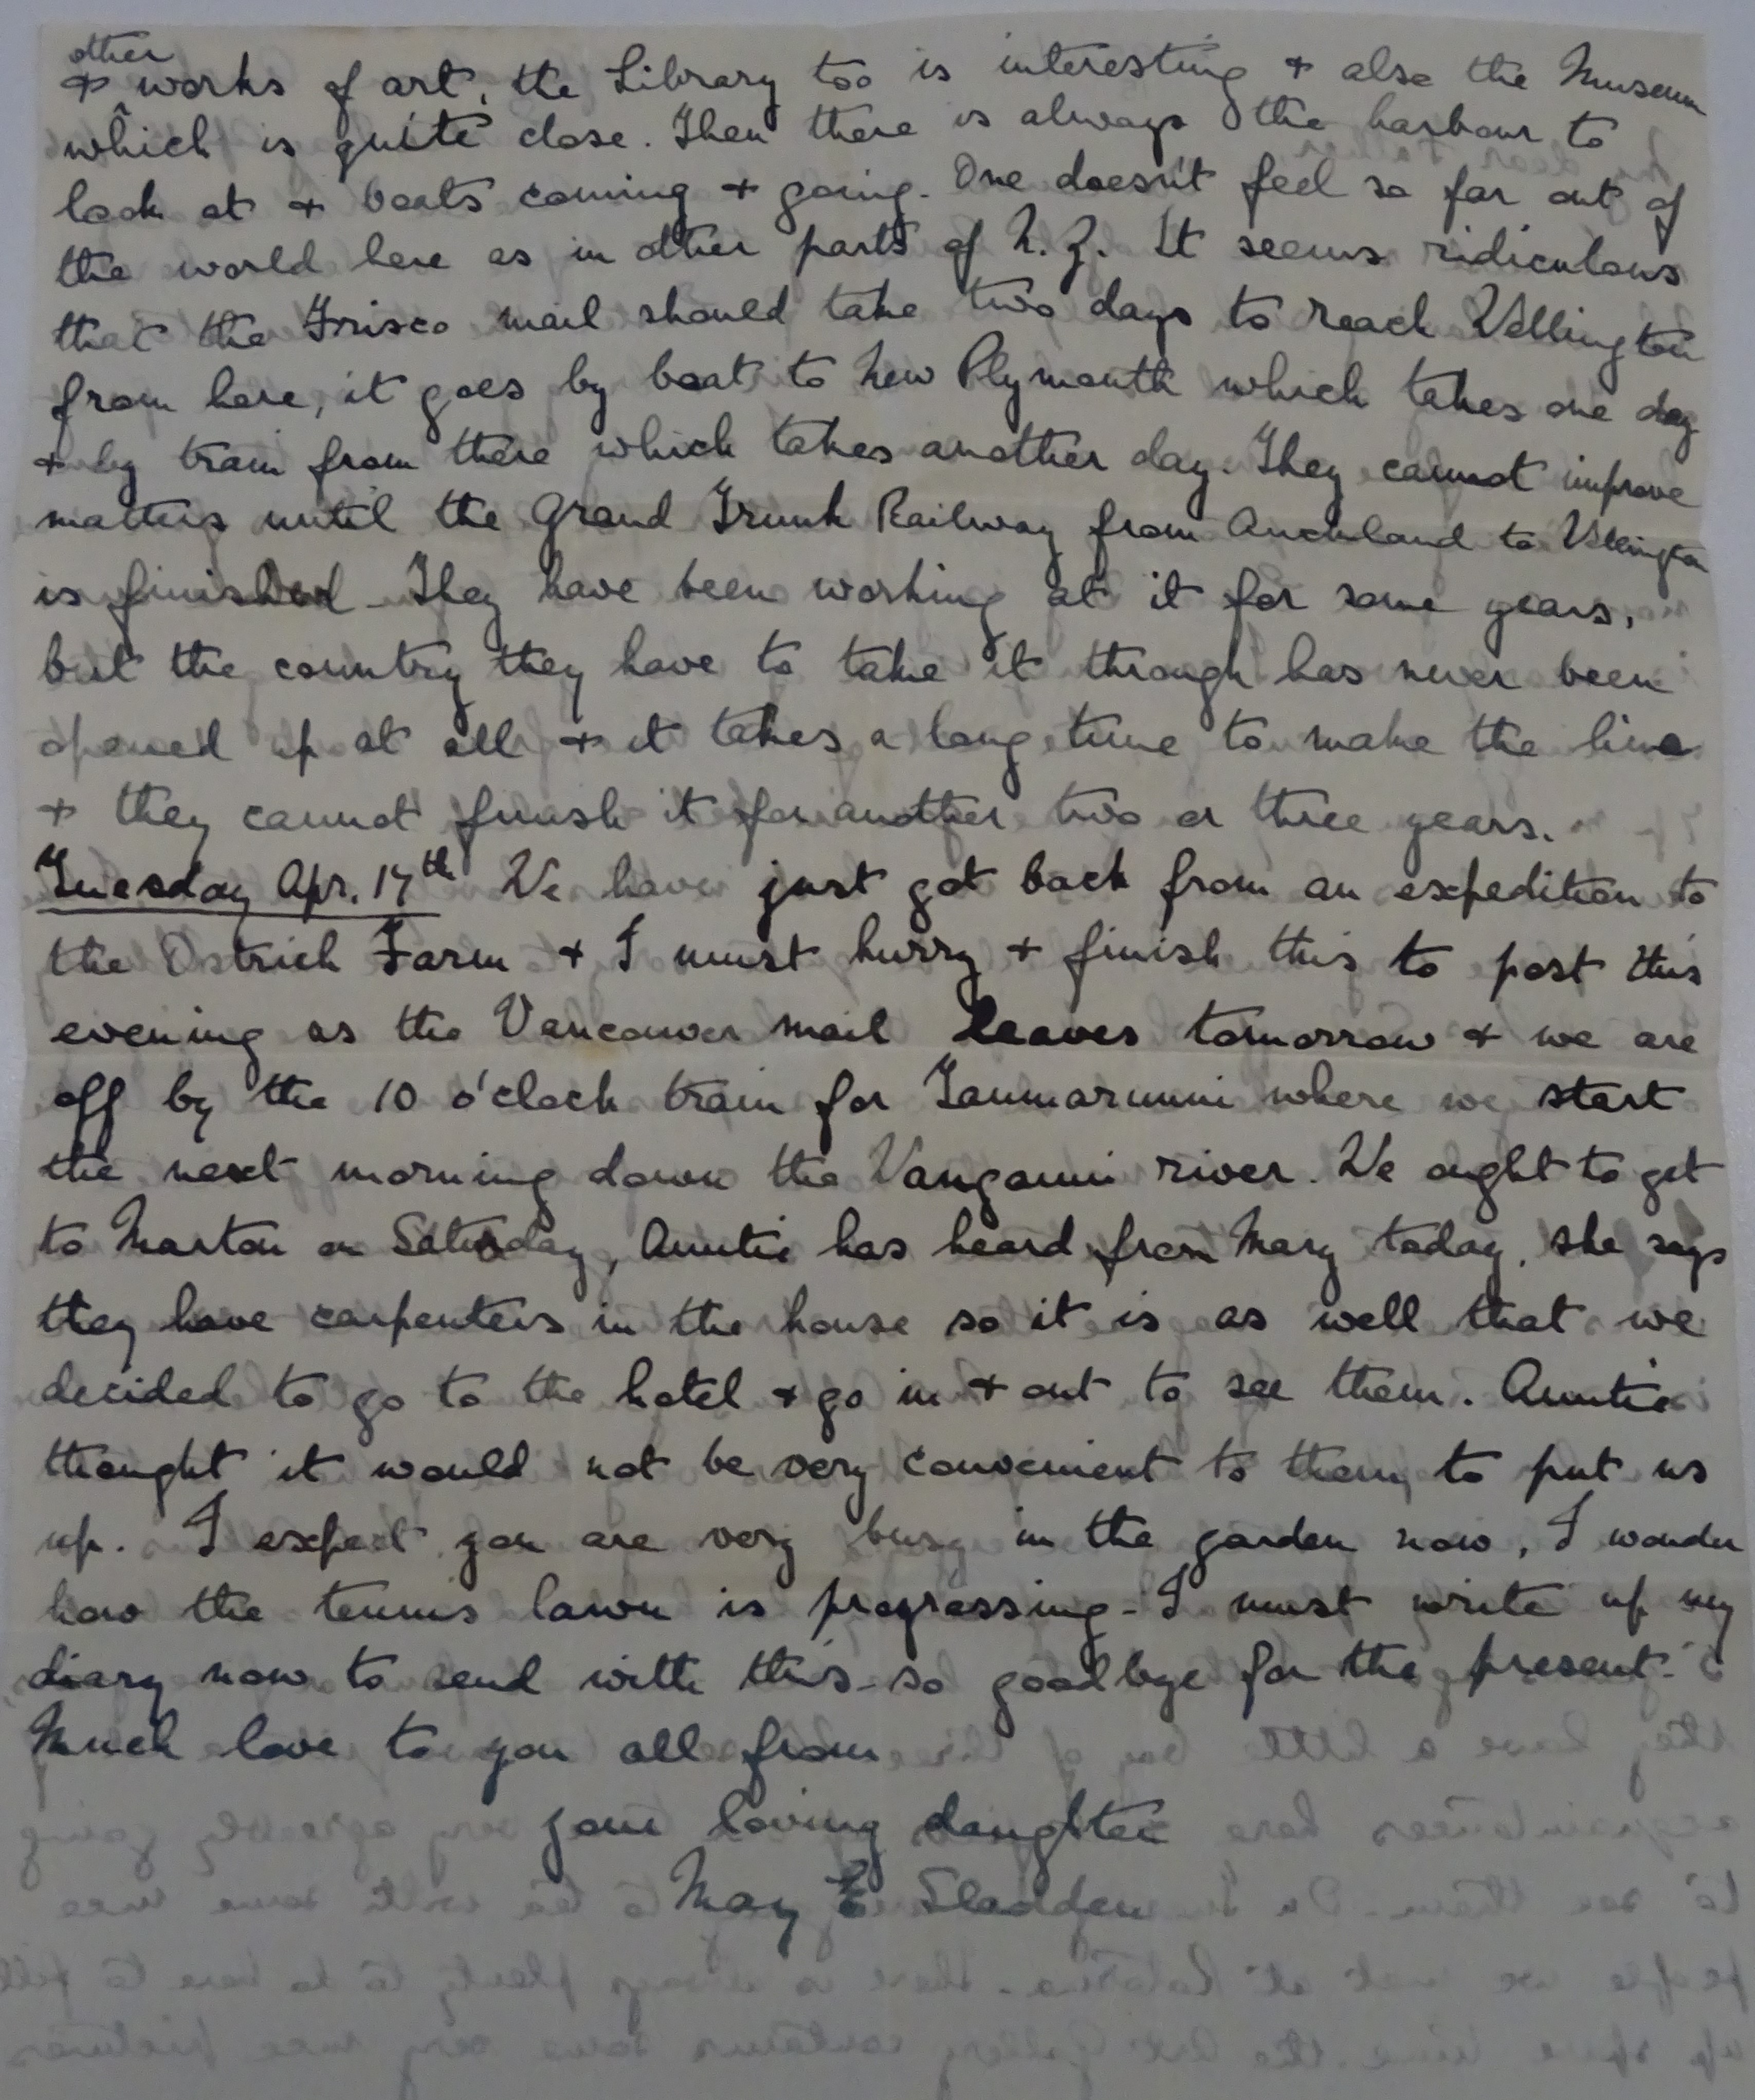 & ^other works of art, the Library too is interesting & also the Museum
which is quite close. Then there is always the harbour to
look at & boats coming & going. One doesn't feel so far out of
the world here as in other parts of N.Z. It seems ridiculous
that the Frisco mail should take two days to reach Wellington
from here, it goes by boat to New Plymouth which takes one day
& by train from there which takes another day. They cannot improve
matters until the Grand Trunk Railway from Auckland to Wellington
is finished. They have been working at it for some years,
but the country they have to take it through has never been
opened up at all & it takes a long time to make the line
& they cannot finish it for another two or three years.
Tuesday Apr. 17th We have just got back from an expedition to
the Ostrich Farm & I must hurry & finish this to post this
evening as the Vancouver mail leaves tomorrow & we are
off by the 10 o'clock train for Taumarunui where we start
the next morning down the Wanganui river. We ought to get
to Marton on Saturday, Auntie has heard from Mary today, she says
they have carpenters in the house so it is as well that we
decided to go to the hotel & go in & out to see them. Auntie
thought it would not be very convenient to them to put us
up. I expect you are very busy in the garden now, I wonder
how the tennis lawn is progressing - I must write up my
diary now to send with this - so goodbye for the present.
Much love to you all from
your loving daughter
May E Sladden